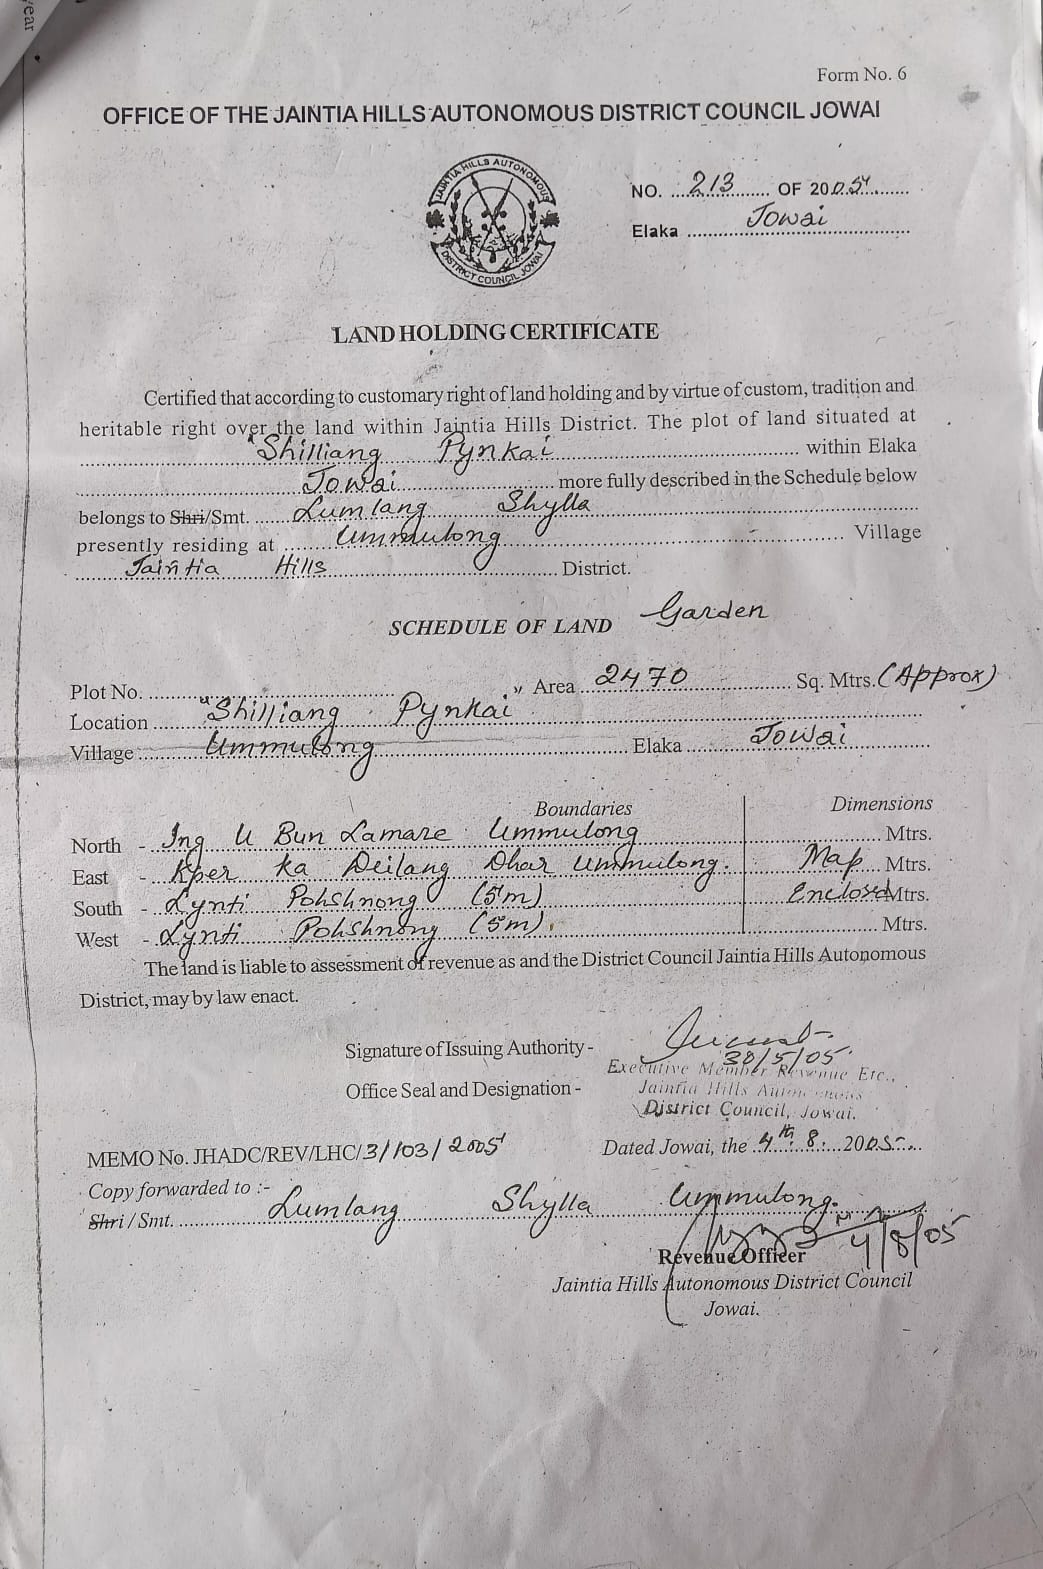 year
Form No. 6
OFFICE OF THE JAINTIA HILLS AUTONOMOUS DISTRICT COUNCIL JOWAI
JAINTIA HILLS AUTONOMOUS
DISTRICT COUNCIL JOWAI
NO. 213 OF 2005
Elaka Jowai
LAND HOLDING CERTIFICATE
Certified that according to customary right of land holding and by virtue of custom, tradition and
heritable right over the land within Jaintia Hills District. The plot of land situated at
"Shilliang Pynkai within Elaka
Jowai more fully described in the Schedule below
belongs to Shri/Smt. Lumlang Shylla
presently residing at Ummulong Village
Jaintia Hills District.
SCHEDULE OF LAND Garden
Plot No. " Area 2470 Sq. Mtrs. (Approx)
Location "Shilliang Pynkai
Village Ummulong Elaka Jowai
Boundaries Dimensions
North - Ing U Bun Lamare Ummulong Mtrs.
East - Kper ka Deilang Dhar Ummulong. Map Mtrs.
South - Lynti Pohshnong (5m) Enclosed Mtrs.
West - Lynti Pohshnong (5m). Mtrs.
The land is liable to assessment of revenue as and the District Council Jaintia Hills Autonomous
District, may by law enact.
Signature of Issuing Authority -
30/5/05.
Executive Member Revenue Etc.,
Office Seal and Designation - Jaintia Hills Autonomous
District Council, Jowai.
MEMO No. JHADC/REV/LHC/3/103/2005 Dated Jowai, the 4th. 8. 2005
Copy forwarded to :-
Shri / Smt. Lumlang Shylla Ummulong.
4/8/05
Revenue Officer
Jaintia Hills Autonomous District Council
Jowai.